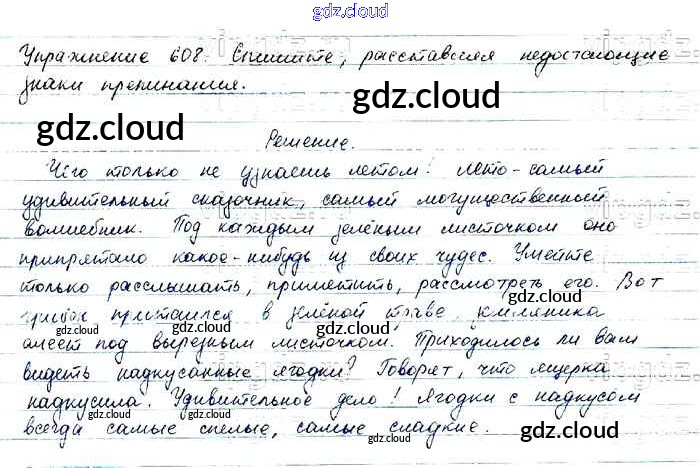 gdz.cloud
Упражнение 608. Спишите, расставляя недостающие
знаки препинания.
gdz.cloud
gdz.cloud
Решение.
Чего только не узнаешь летом! Лето - самый
удивительный сказочник, самый могущественный
волшебник. Под каждым зелёным листочком оно
припрятало какое-нибудь из своих чудес. Умейте
только расслышать, приметить, рассмотреть его. Вот
грибок притаился в зелёной траве, земляника
gdz.cloud gdz.cloud gdz.cloud
алеет под вырезным листочком. Приходилось ли вам
видеть надкусанные ягодки? Говорят, что ящерка
gdz.cloud
надкусила. Удивительное дело! Ягодки с надкусом
gdz.cloud
всегда самые спелые, самые сладкие.
gdz.cloud